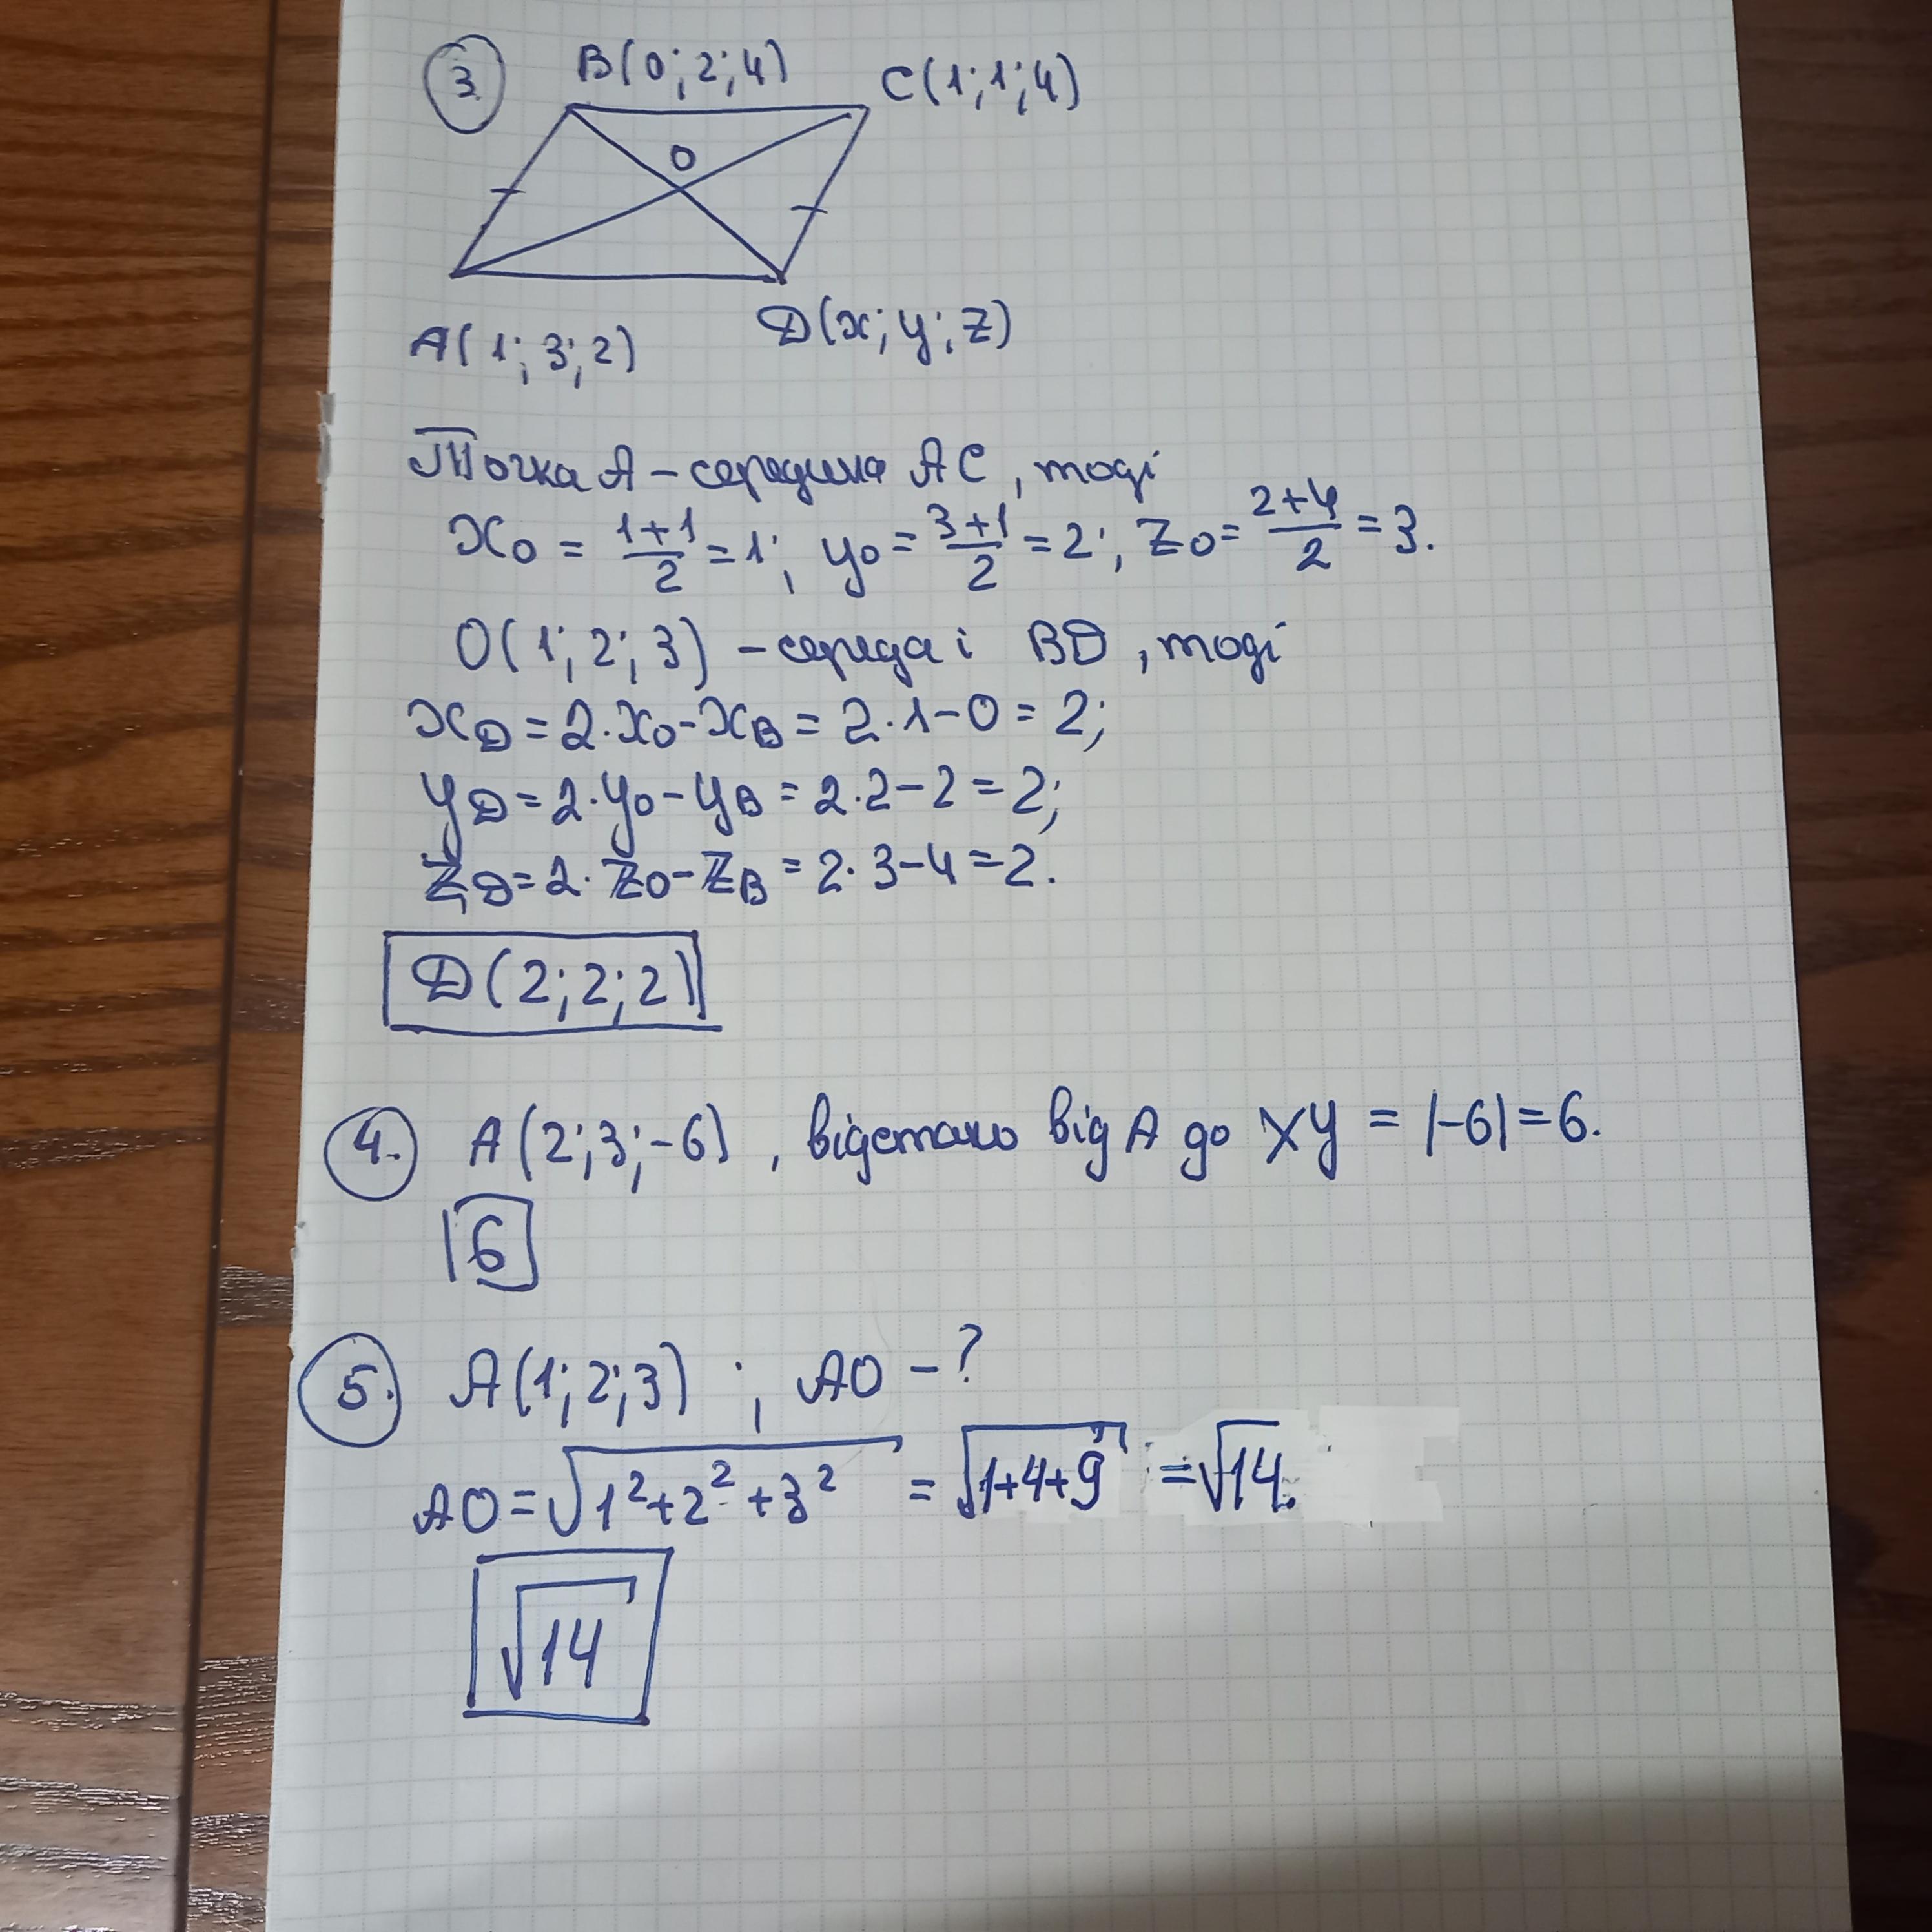 3 B(0; 2; 4) C(1; 1; 4)
O
A(1; 3; 2) D(x; y; z)
Точка A – середина AC, тоді
x₀ = (1+1)/2 = 1; y₀ = (3+1)/2 = 2; z₀ = (2+4)/2 = 3.
O(1; 2; 3) – середа і BD, тоді
x_D = 2·x₀ - x_B = 2·1 - 0 = 2;
y_D = 2·y₀ - y_B = 2·2 - 2 = 2;
z_D = 2·z₀ - z_B = 2·3 - 4 = 2.
D(2; 2; 2)
4. A(2; 3; -6), відстань від A до XY = |-6| = 6.
6
5. A(1; 2; 3) ; AO – ?
AO = √(1² + 2² + 3²) = √(1+4+9) = √14.
√14